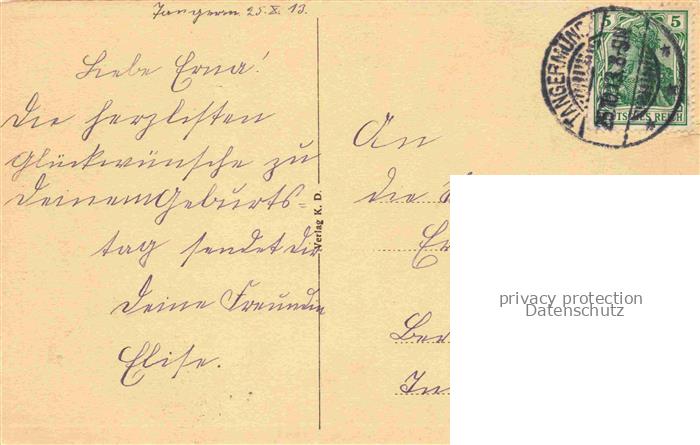 Tangerm 25. X. 13.
Liebe Erna!
Die herzlichsten
Glückwünsche zu
Deinem Geburts-
tag sendet dir
Deine Freundin
Elise.
Verlag K. D.
An
die
Er
Ber
In
TANGERMÜNDE
25.10.13. 8-9N
5 5
DEUTSCHES REICH
privacy protection
Datenschutz